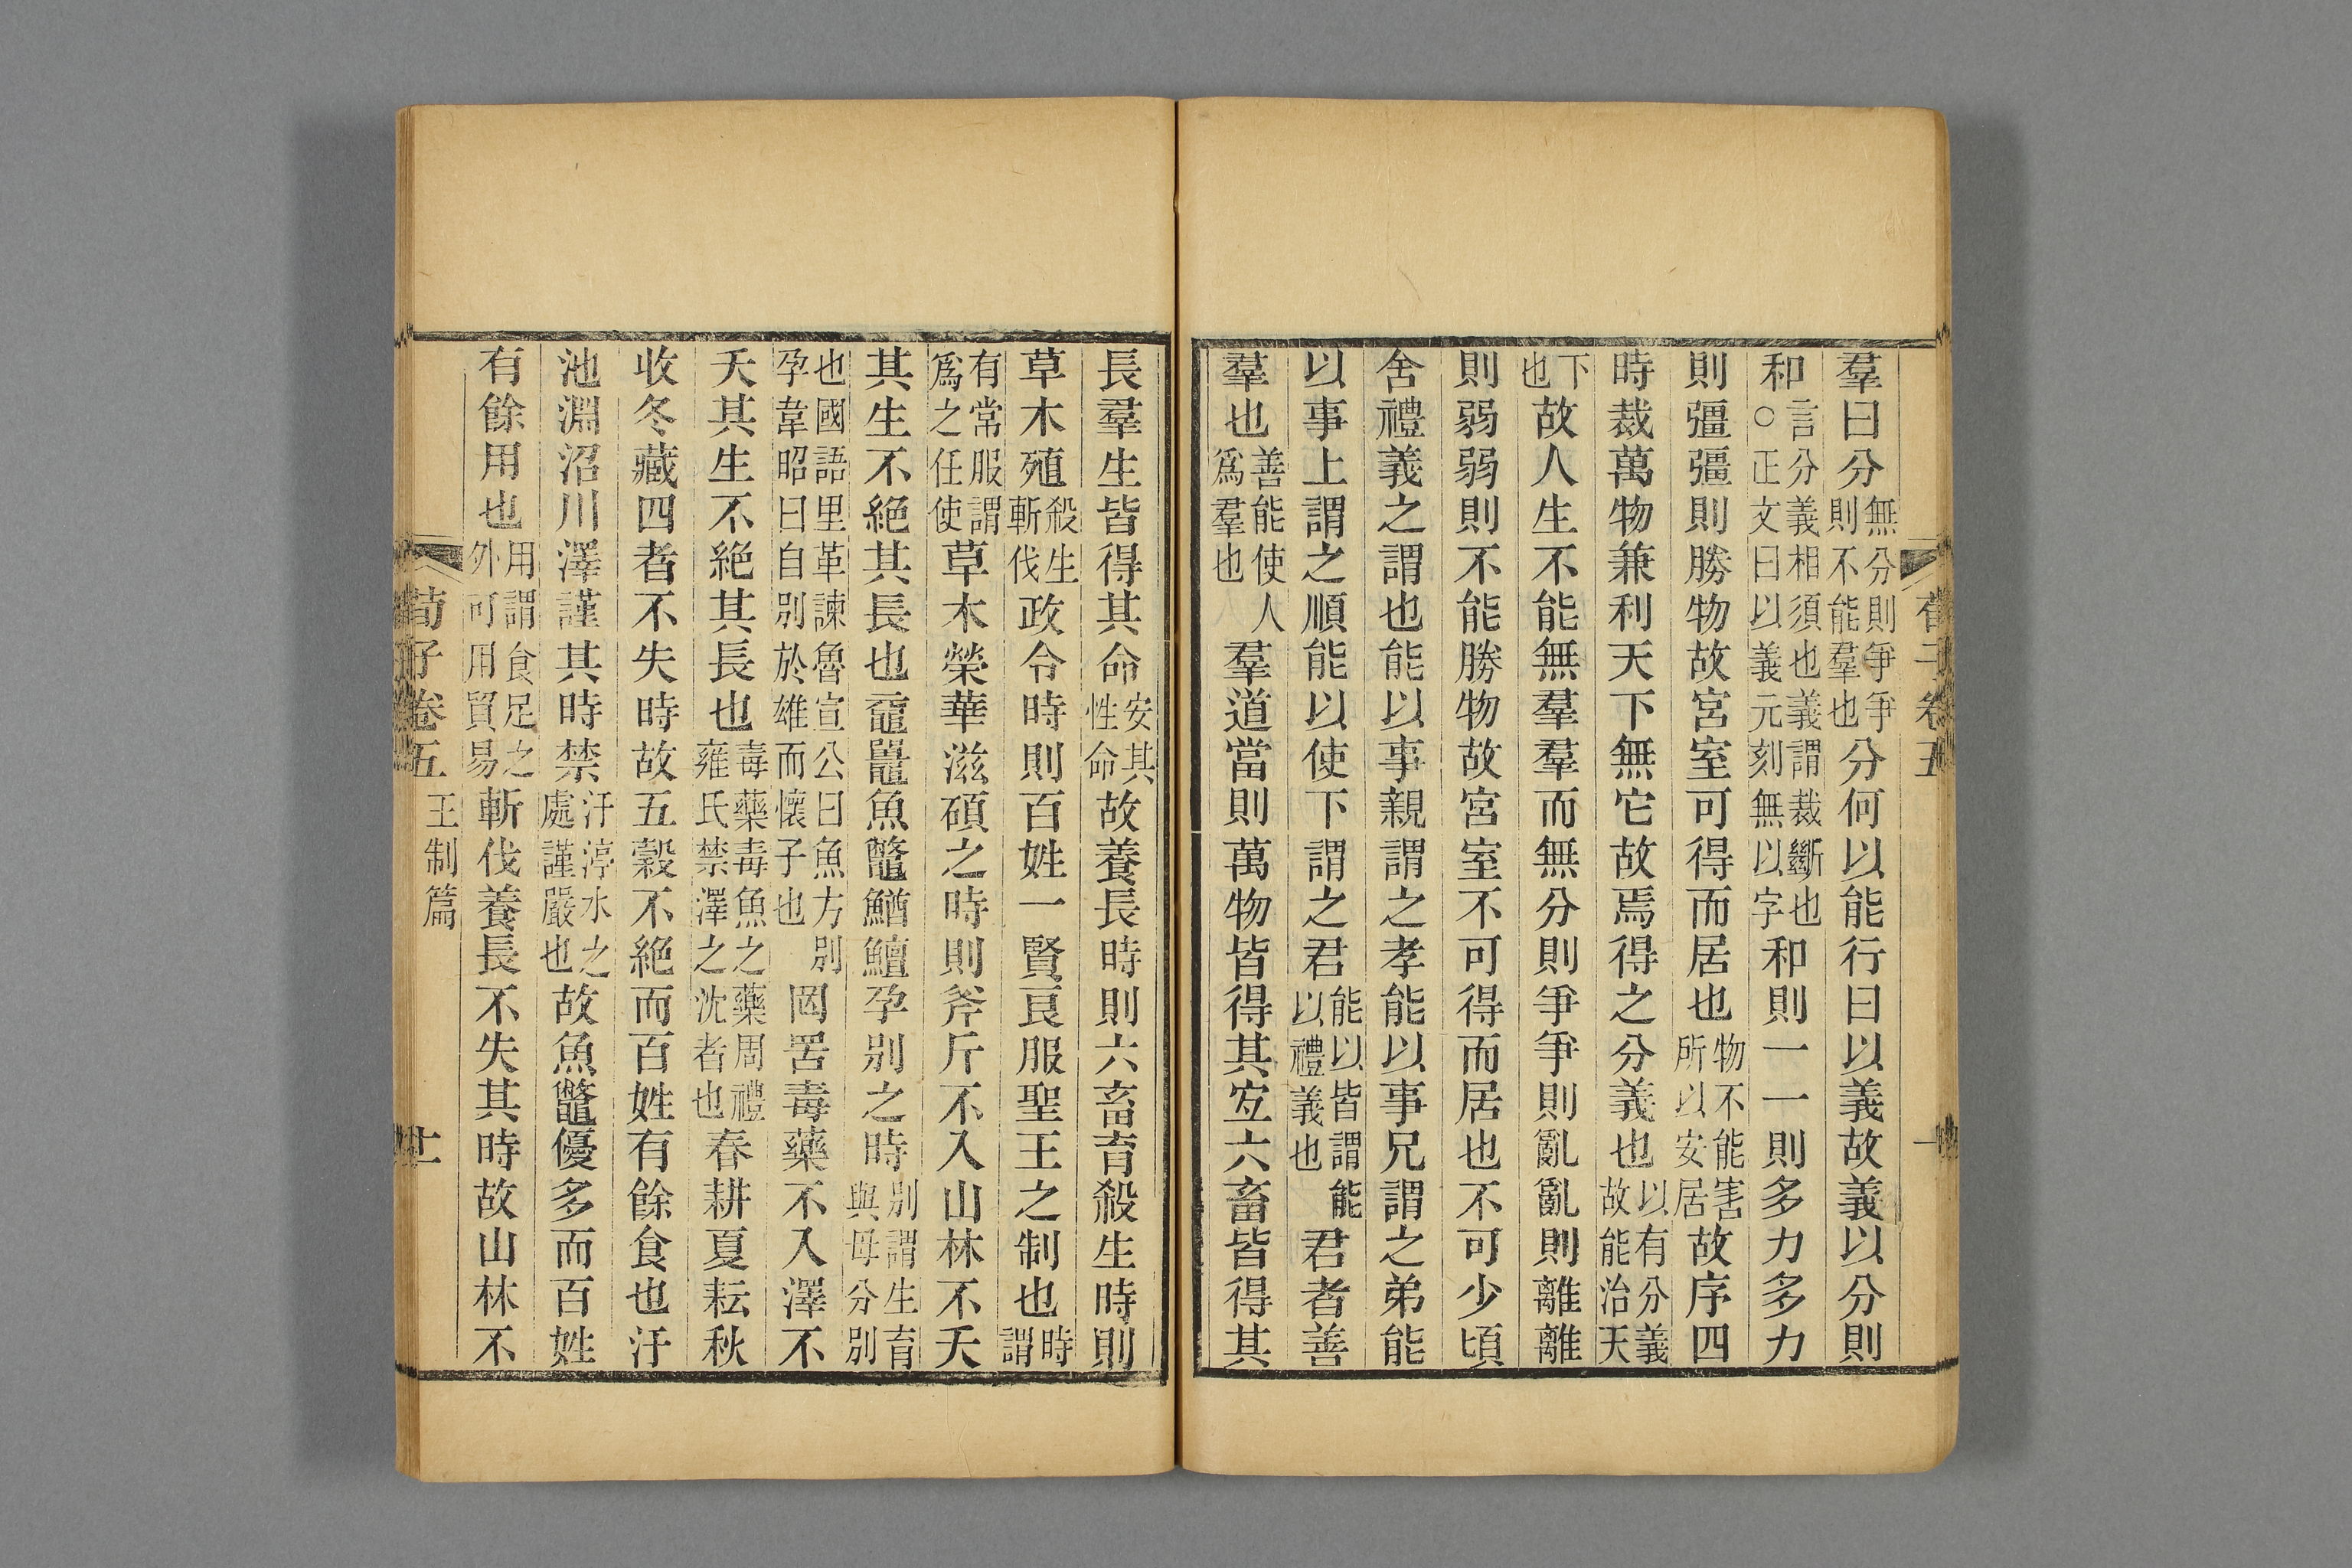 荀子卷五
羣曰分無分則爭爭則不能羣也分何以能行曰以義故義以分則
和言分義相須也義謂裁斷也○正文曰以義元刻無以字和則一一則多力多力
則彊彊則勝物故宮室可得而居也物不能害所以安居故序四
時裁萬物兼利天下無它故焉得之分義也以有分義故能治天
下也故人生不能無羣羣而無分則爭爭則亂亂則離離
則弱弱則不能勝物故宮室不可得而居也不可少頃
舍禮義之謂也能以事親謂之孝能以事兄謂之弟能
以事上謂之順能以使下謂之君能以皆謂能以禮義也君者善
羣也善能使人爲羣也羣道當則萬物皆得其宐六畜皆得其
長羣生皆得其命安其性命故養長時則六畜育殺生時則
草木殖殺生斬伐政令時則百姓一賢良服聖王之制也時謂
有常服謂爲之任使草木榮華滋碩之時則斧斤不入山林不夭
其生不絕其長也黿鼉魚鼈鰌鱣孕別之時別謂生育與母分別
也國語里革諫魯宣公曰魚方別孕韋昭曰自別於雄而懷子也罔罟毒藥不入澤不
夭其生不絕其長也毒藥毒魚之藥周禮雍氏禁澤之沈者也春耕夏耘秋
收冬藏四者不失時故五穀不絕而百姓有餘食也汙
池淵沼川澤謹其時禁汙渟水之處謹嚴也故魚鼈優多而百姓
有餘用也用謂食足之外可用貿易斬伐養長不失其時故山林不
荀子卷五 王制篇 十一